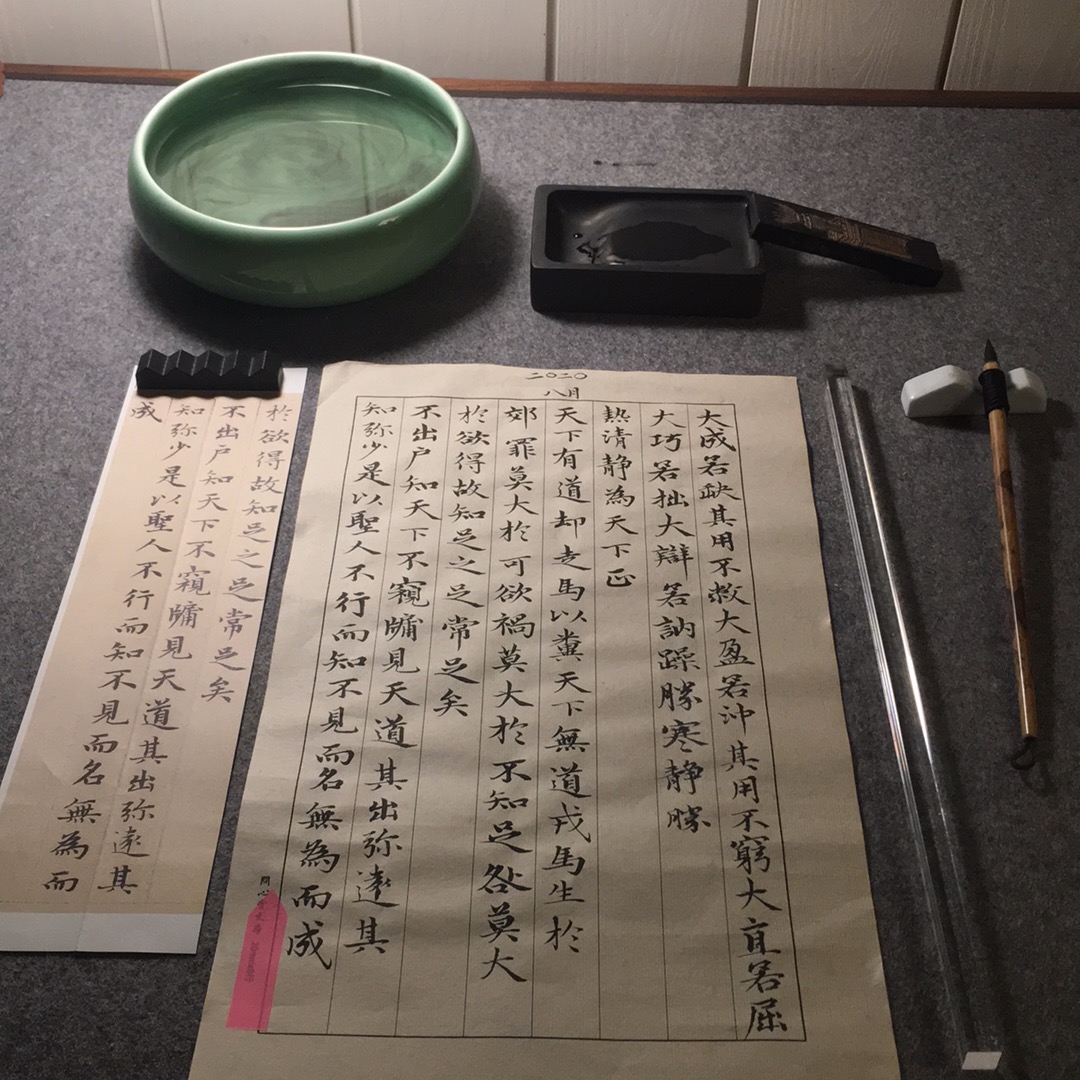 二〇二〇
八月
大成若缺其用不敝大盈若沖其用不窮大直若屈
大巧若拙大辯若訥躁勝寒静勝
熱清静為天下正
天下有道却走馬以糞天下無道戎馬生於
郊罪莫大於可欲禍莫大於不知足咎莫大
於欲得故知足之足常足矣
不出户知天下不窺牖見天道其出弥逺其
知弥少是以聖人不行而知不見而名無為而成
於欲得故知足之足常足矣
不出户知天下不窺牖見天道其出弥逺其
知弥少是以聖人不行而知不見而名無為而
成